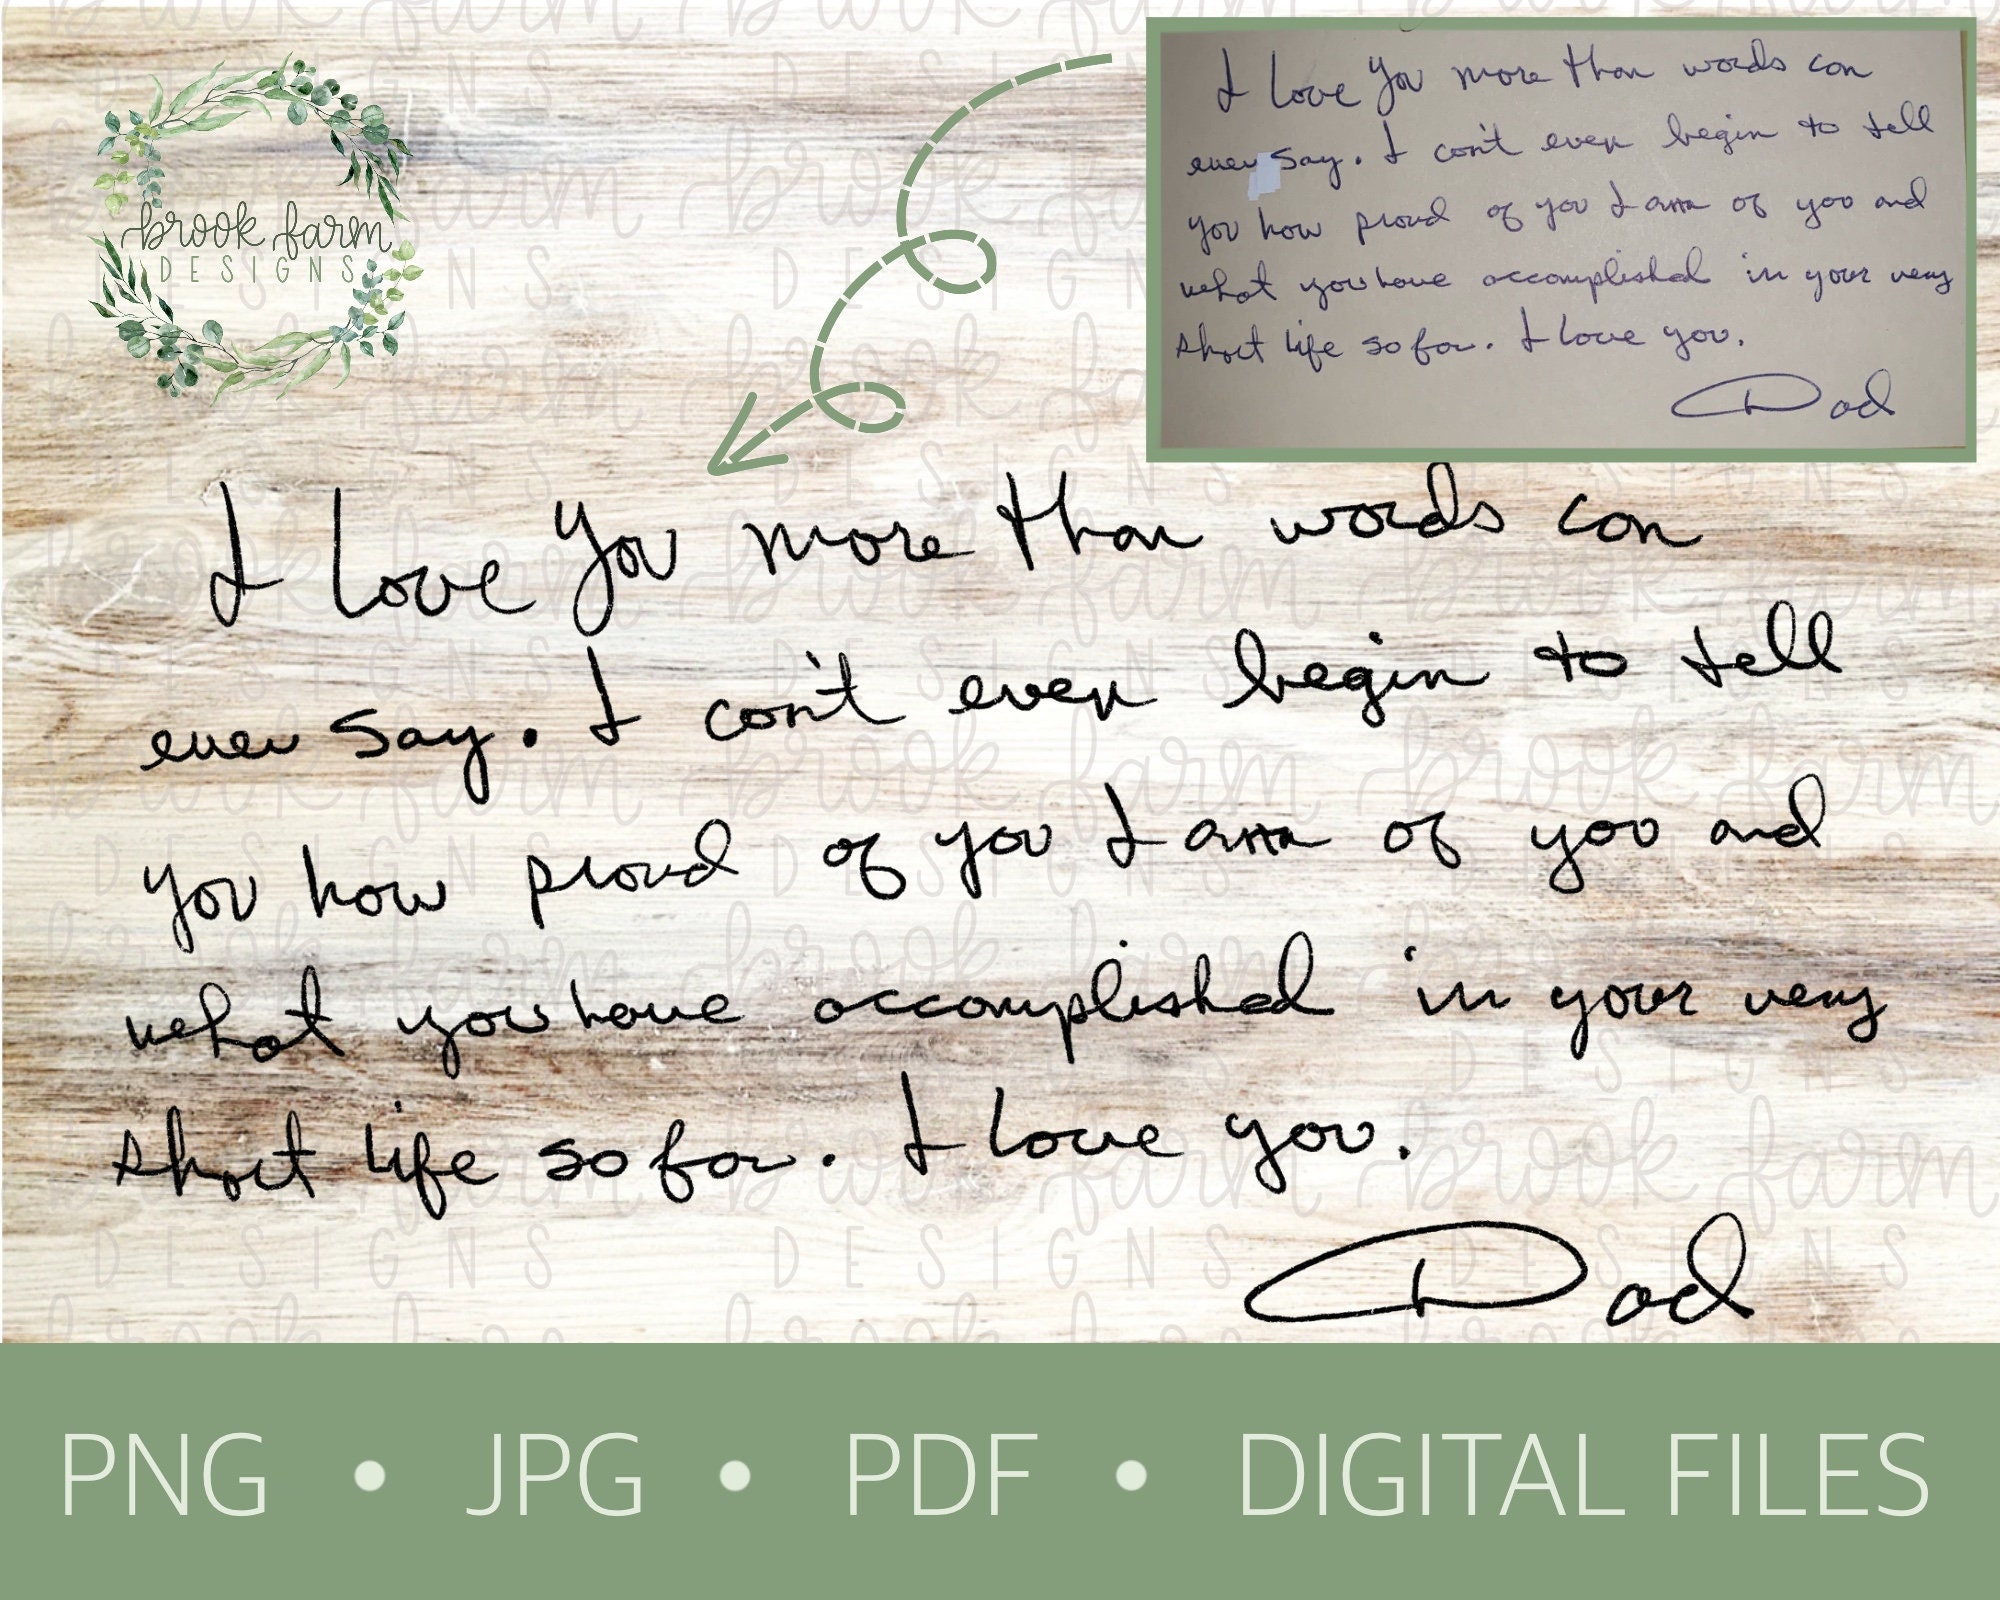 brook farm
DESIGNS
I love you more than words can
ever say. I can't even begin to tell
you how proud of you I am of you and
what you have accomplished in your very
short life so far. I love you.
Dad
I love you more than words can
ever say. I can't even begin to tell
you how proud of you I am of you and
what you have accomplished in your very
short life so far. I love you.
Dad
PNG • JPG • PDF • DIGITAL FILES